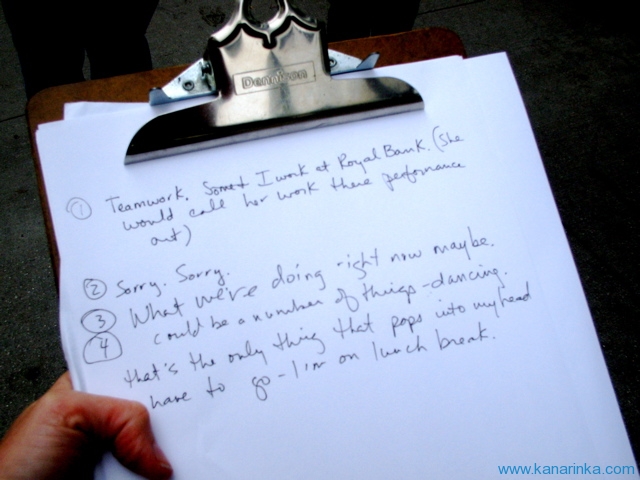 Dennison
① Teamwork. I work at Royal Bank. (She
would call her work there performance
art)
② Sorry. Sorry.
③ What we're doing right now maybe.
④ could be a number of things - dancing.
that's the only thing that pops into my head
have to go - I'm on lunch break.
www.kanarinka.com